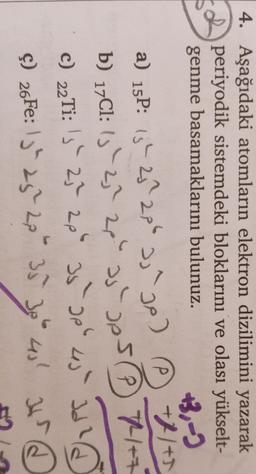 4. Aşağıdaki atomların elektron dizilimini yazarak
periyodik sistemdeki bloklarını ve olası yükselt-
genme basamaklarını bulunuz.
a) 15P: 1s² 2s² 2p⁶ 3s² 3p³ (P)
b) 17Cl: 1s² 2s² 2p⁶ 3s² 3p⁵ (P)
c) 22Ti: 1s² 2s² 2p⁶ 3s² 3p⁶ 4s² 3d² (d)
ç) 26Fe: 1s² 2s² 2p⁶ 3s² 3p⁶ 4s¹ 3d⁵ (d)